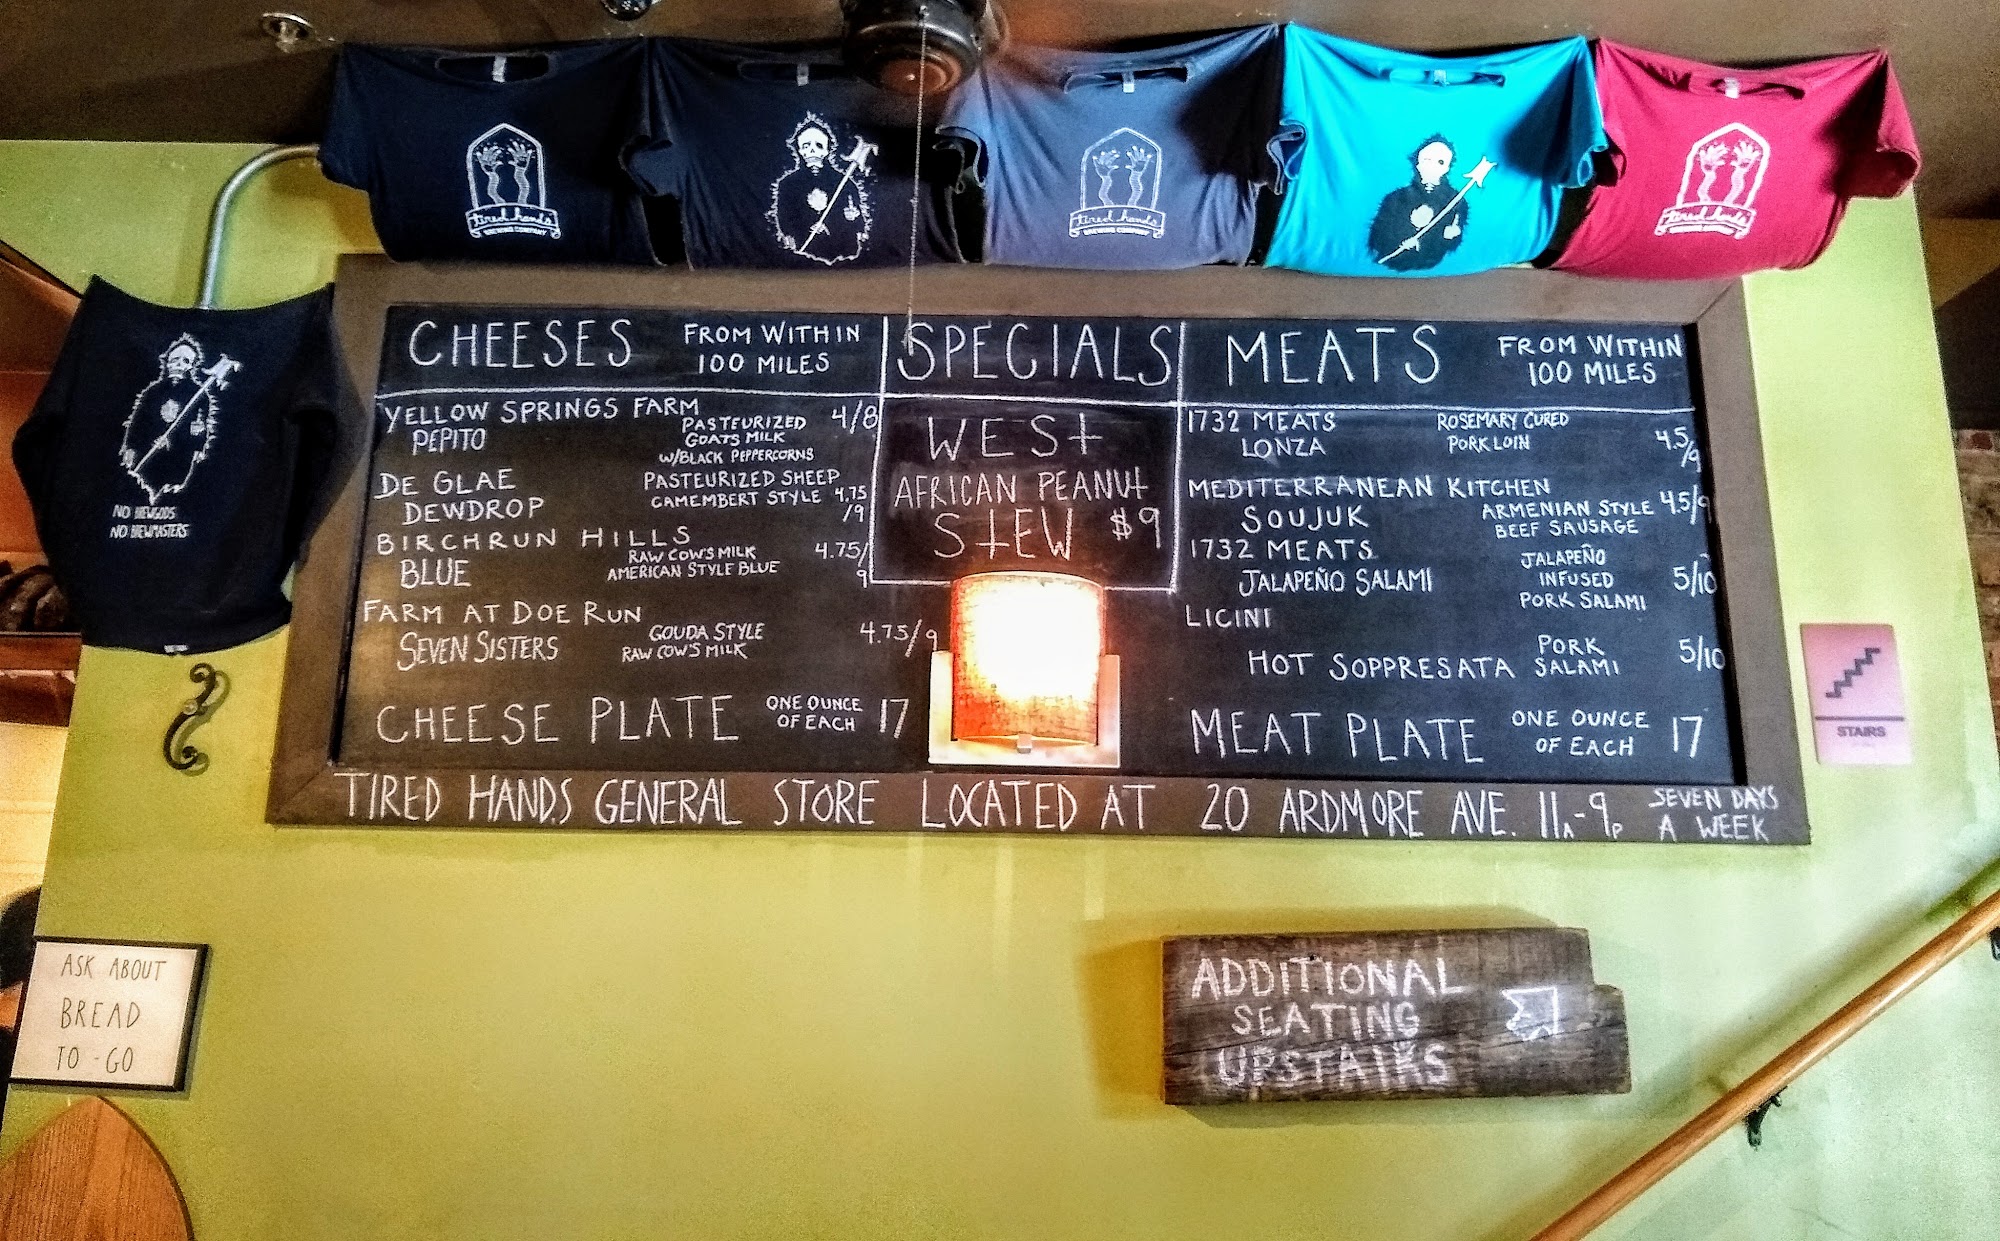 tired hands
BREWING COMPANY
tired hands
BREWING COMPANY
tired hands
NO BREWGODS
NO BREWMASTERS
CHEESES FROM WITHIN
100 MILES
YELLOW SPRINGS FARM
PEPITO
PASTEURIZED
GOATS MILK
W/BLACK PEPPERCORNS
4/8
DE GLAE
DEWDROP
PASTEURIZED SHEEP
CAMEMBERT STYLE
4.75
/9
BIRCHRUN HILLS
BLUE
RAW COW'S MILK
AMERICAN STYLE BLUE
4.75/
9
FARM AT DOE RUN
SEVEN SISTERS
GOUDA STYLE
RAW COW'S MILK
4.75/9
CHEESE PLATE
ONE OUNCE
OF EACH
17
SPECIALS
WEST
AFRICAN PEANUT
STEW $9
MEATS FROM WITHIN
100 MILES
1732 MEATS
LONZA
ROSEMARY CURED
PORK LOIN
4.5/
9
MEDITERRANEAN KITCHEN
SOUJUK
ARMENIAN STYLE
BEEF SAUSAGE
4.5/9
1732 MEATS
JALAPEÑO SALAMI
JALAPEÑO
INFUSED
PORK SALAMI
5/10
LICINI
HOT SOPPRESATA
PORK
SALAMI
5/10
MEAT PLATE
ONE OUNCE
OF EACH
17
TIRED HANDS GENERAL STORE LOCATED AT 20 ARDMORE AVE. 11A-9P
SEVEN DAYS
A WEEK
STAIRS
ASK ABOUT
BREAD
TO-GO
ADDITIONAL
SEATING
UPSTAIRS